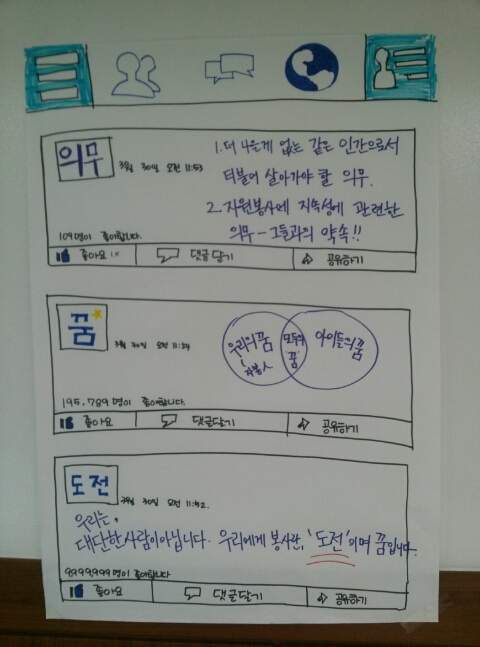 의무
3월 30일 오전 11:53
1. 더 나을게 없는 같은 인간으로서
더불어 살아가야 할 의무.
2. 자원봉사에 지속성에 관련한
의무 - 그들과의 약속!!
109명이 좋아합니다.
좋아요
댓글달기
공유하기
꿈
3월 30일 오전
우리의 꿈
자봉人
모두의
꿈
아이들의 꿈
195,789명이 좋아합니다.
좋아요
댓글달기
공유하기
도전
3월 30일 오전 11:42
우리는,
대단한사람이아닙니다. 우리에게 봉사란, '도전'이며 꿈입니다.
9999999명이 좋아합니다
좋아요
댓글달기
공유하기